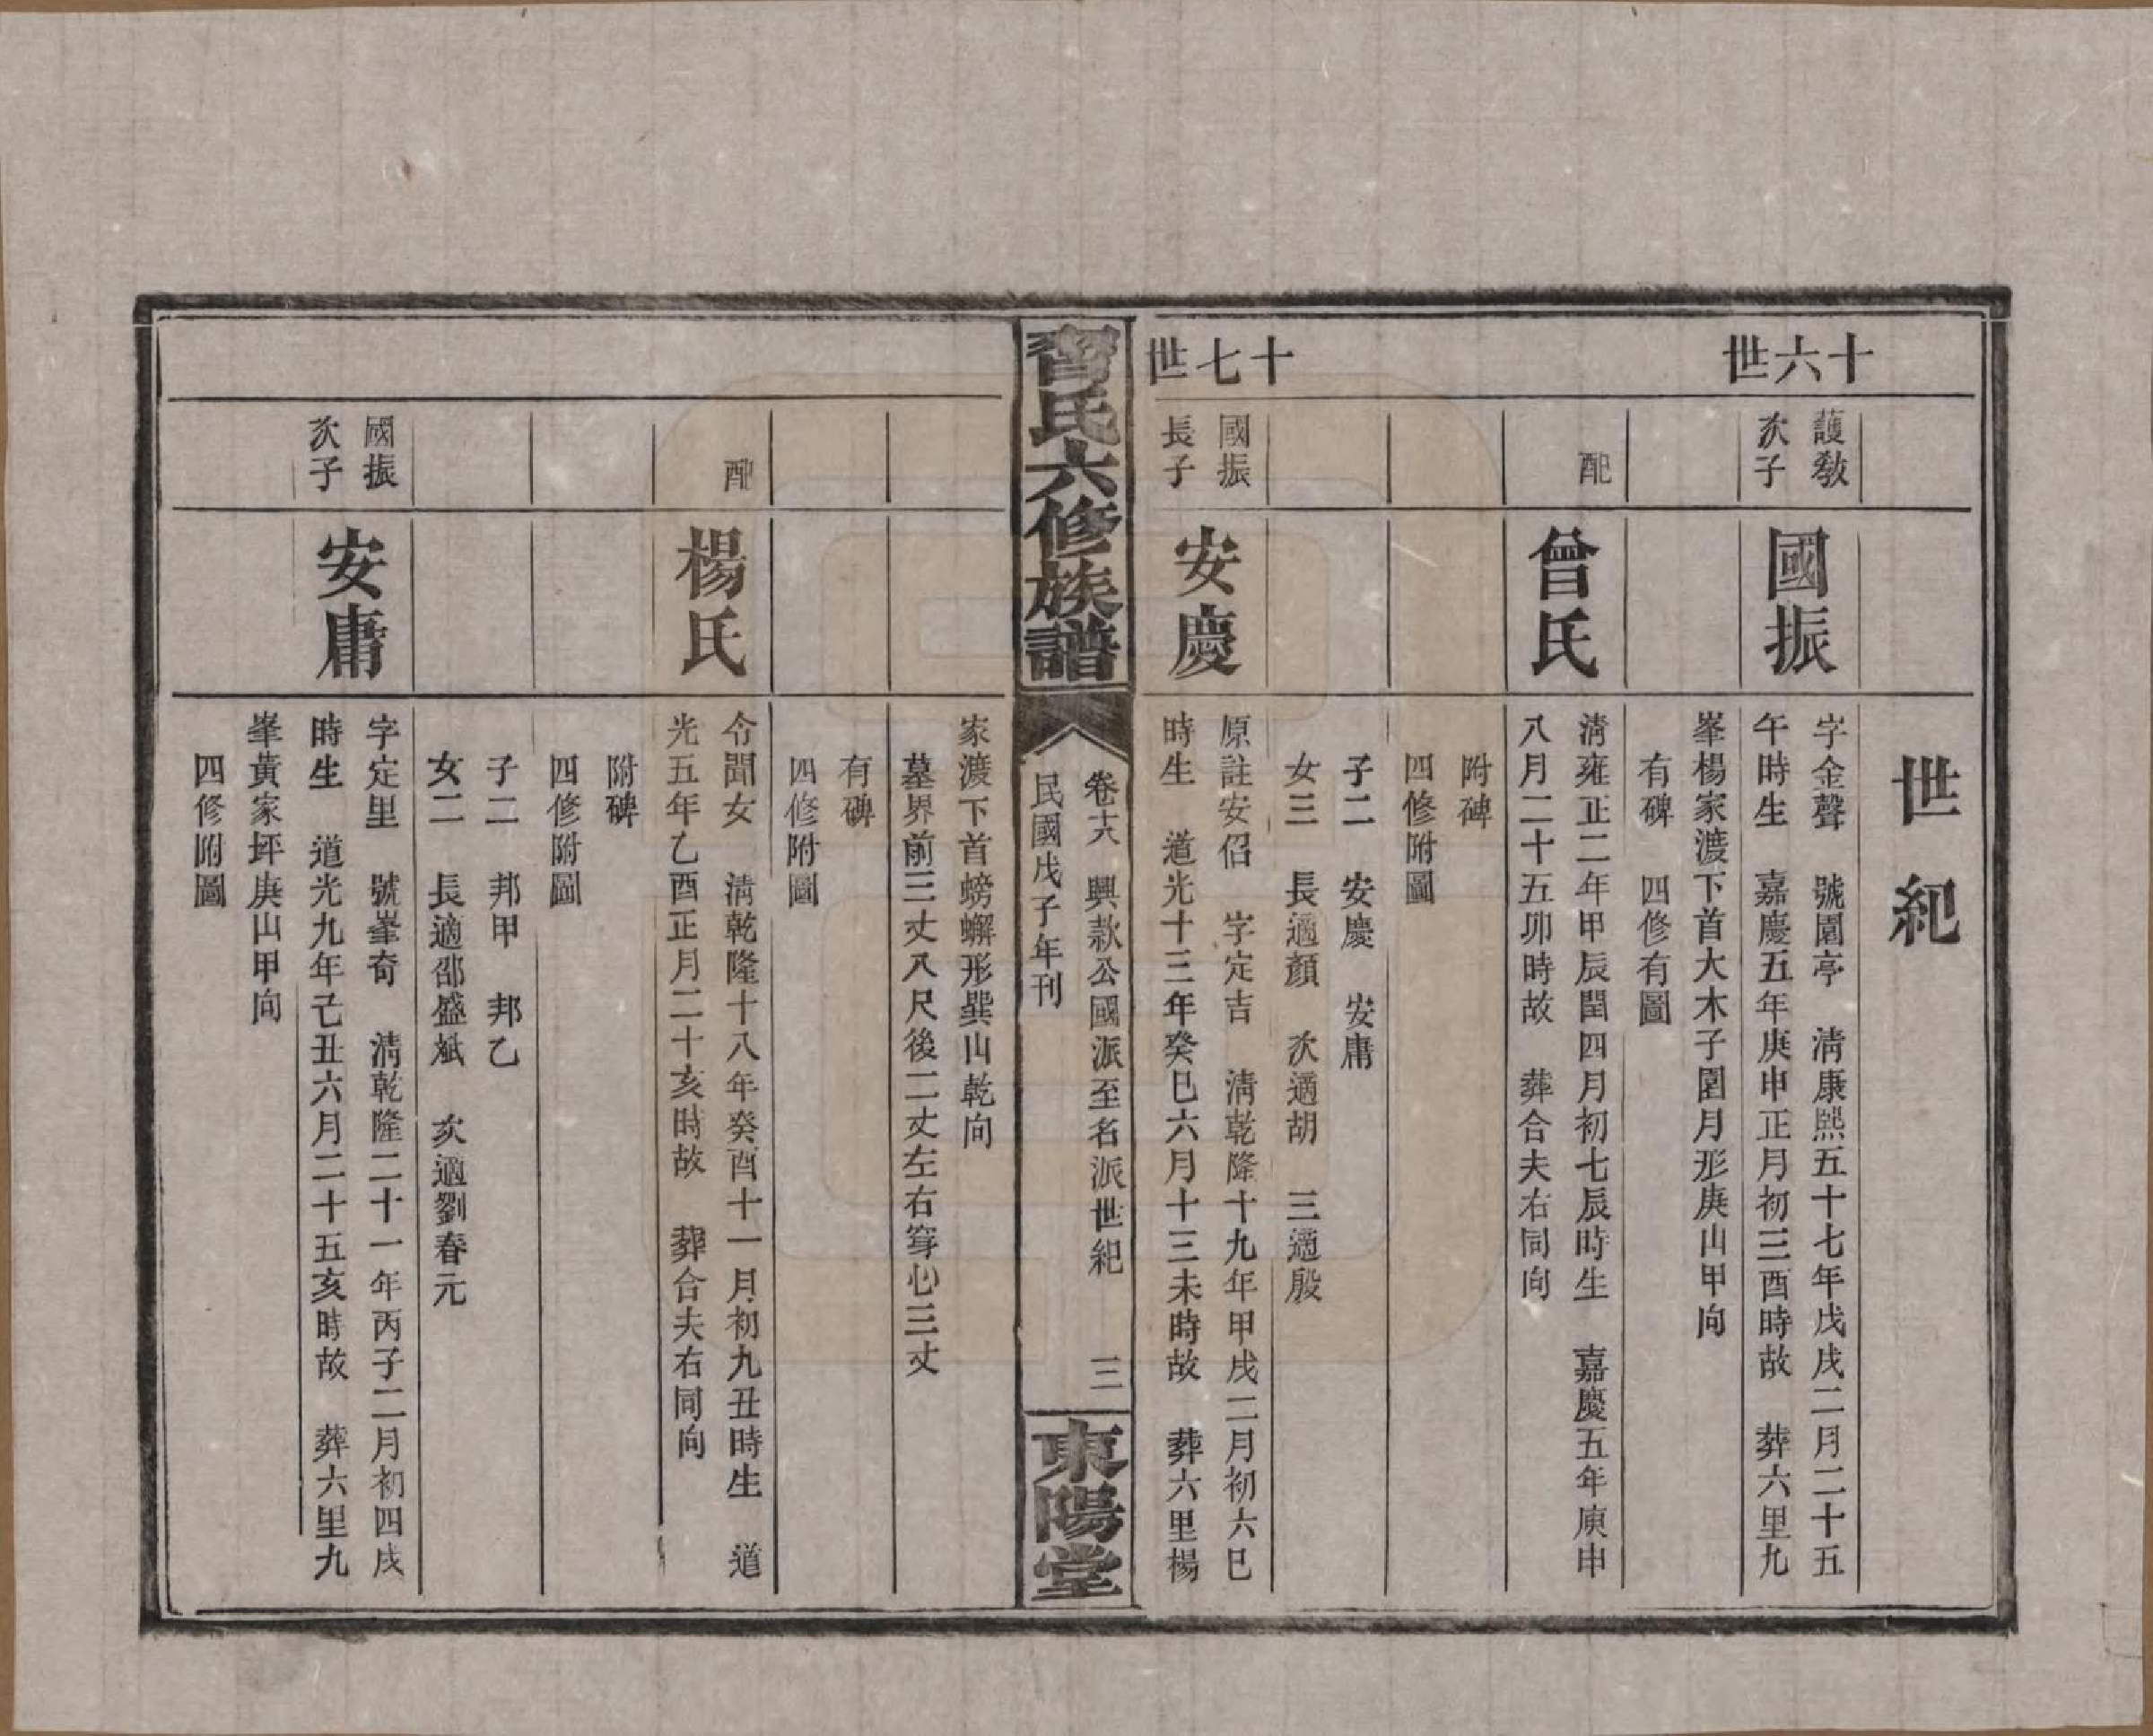 世紀
十六世
護教
次子
國振
字金聲　號園亭　淸康熙五十七年戊戌二月二十五
午時生　嘉慶五年庚申正月初三酉時故　葬六里九
峯楊家渡下首大木子園月形庚山甲向
有碑　四修有圖
配
曾氏
淸雍正二年甲辰閏四月初七辰時生　嘉慶五年庚申
八月二十五卯時故　葬合夫右同向
附碑
四修附圖
子二　安慶　安庸
女三　長適顏　次適胡　三適殷
十七世
國振
長子
安慶
原註安佋　字定吉　淸乾隆十九年甲戌二月初六巳
時生　道光十三年癸巳六月十三未時故　葬六里楊
習氏六修族譜
卷十八　興款公國派至名派世紀　三
民國戊子年刊
東陽堂
家渡下首螃蠏形巽山乾向
墓界前三丈八尺後二丈左右穿心三丈
有碑
四修附圖
配
楊氏
令聞女　淸乾隆十八年癸酉十一月初九丑時生　道
光五年乙酉正月二十亥時故　葬合夫右同向
附碑
四修附圖
子二　邦甲　邦乙
女二　長適邵盛斌　次適劉春元
國振
次子
安庸
字定里　號峯奇　淸乾隆二十一年丙子二月初四戌
時生　道光九年己丑六月二十五亥時故　葬六里九
峯黃家坪庚山甲向
四修附圖